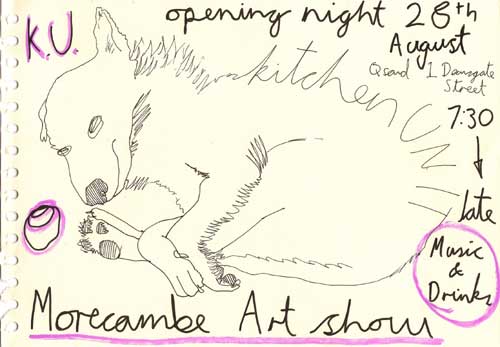 opening night 28th
K.U.
August
Qsard 1 Deansgate
Street
kitchen
7:30
late
Music
&
Drinks
Morecambe Art show